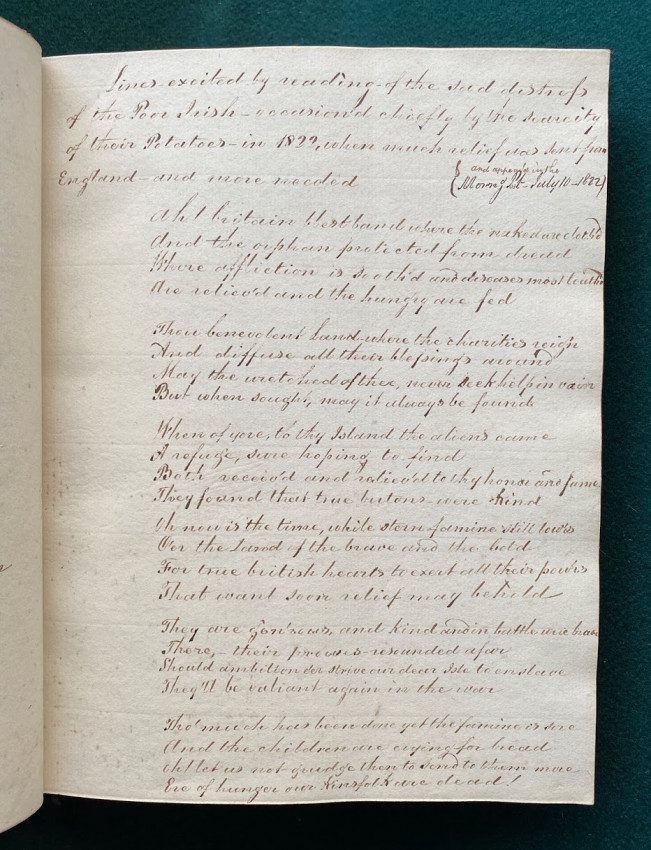 Lines excited by reading of the sad distress
of the Poor Irish - occasion'd chiefly by the scarcity
of their Potatoes - in 1822, when much relief was sent from
England - and more needed
(and appeared in the
Morng Post - July 10 - 1822)
Ah! britain blest land where the naked are cloth'd
And the orphan protected from dread
Where affliction is sooth'd and diseases most loath'd
Are reliev'd and the hungry are fed
Thou benevolent Land - where the charities reign
And diffuse all their blessings around
May the wretched of thee, never seek help in vain
But when sought, may it always be found
When of yore, to thy Island the aliens came
A refuge, sure hoping to find
Both receiv'd and reliev'd to thy honor and fame
They found that true britons - were kind
Oh now is the time, while stern famine still low'rs
O'er the Land of the brave and the bold
For true british hearts to exert all their pow'rs
That want soon relief may behold
They are gen'rous, and kind and in battle were brave
There, - their prowess - resounded afar
Should ambition e'er strive our dear Isle to enslave
They'll be valiant again in the war
Tho' much has been done yet the famine is sore
And the children are crying for bread
Oh! let us not grudge then to send to them more
Ere of hunger our Kinsfolk are dead!